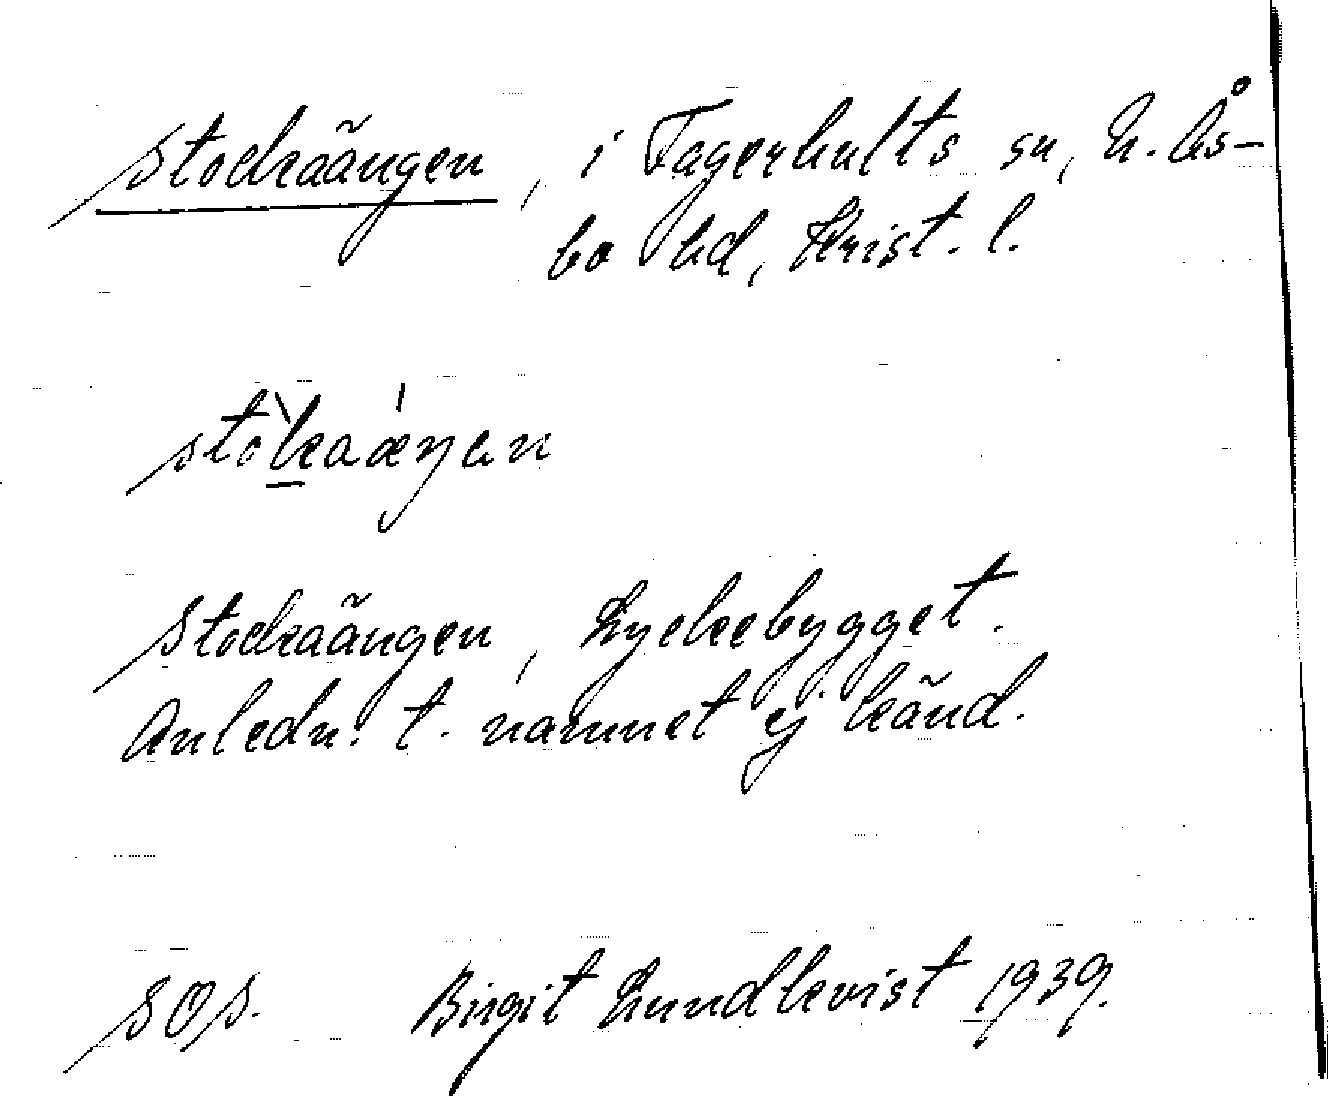 Stockaängen, i Fagerhults sn, N. Ås-
bo hd, Krist. l.
stòkaáŋen
Stockaängen, Lyckebygget.
Anledn. t. namnet ej känd.
SOS. Birgit Lundkvist 1939.